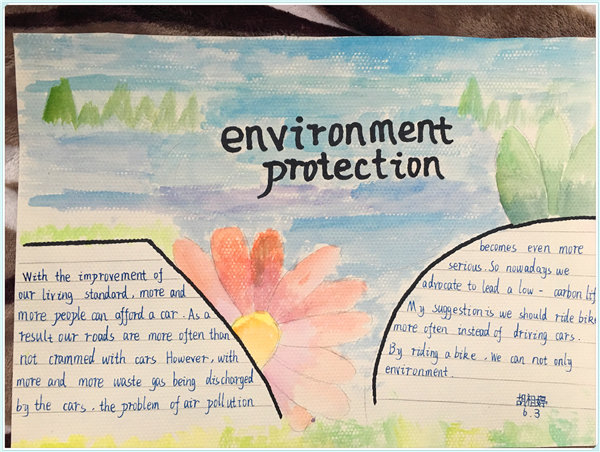 environment
protection
With the improvement of
our living standard, more and
more people can afford a car. As a
result our roads are more often than
not crammed with cars. However, with
more and more waste gas being discharged
by the cars, the problem of air pollution
becomes even more
serious. So nowadays we
advocate to lead a low - carbon lif
My suggestion is we should ride bike
more often instead of driving cars.
By riding a bike, we can not only
environment.
6.3